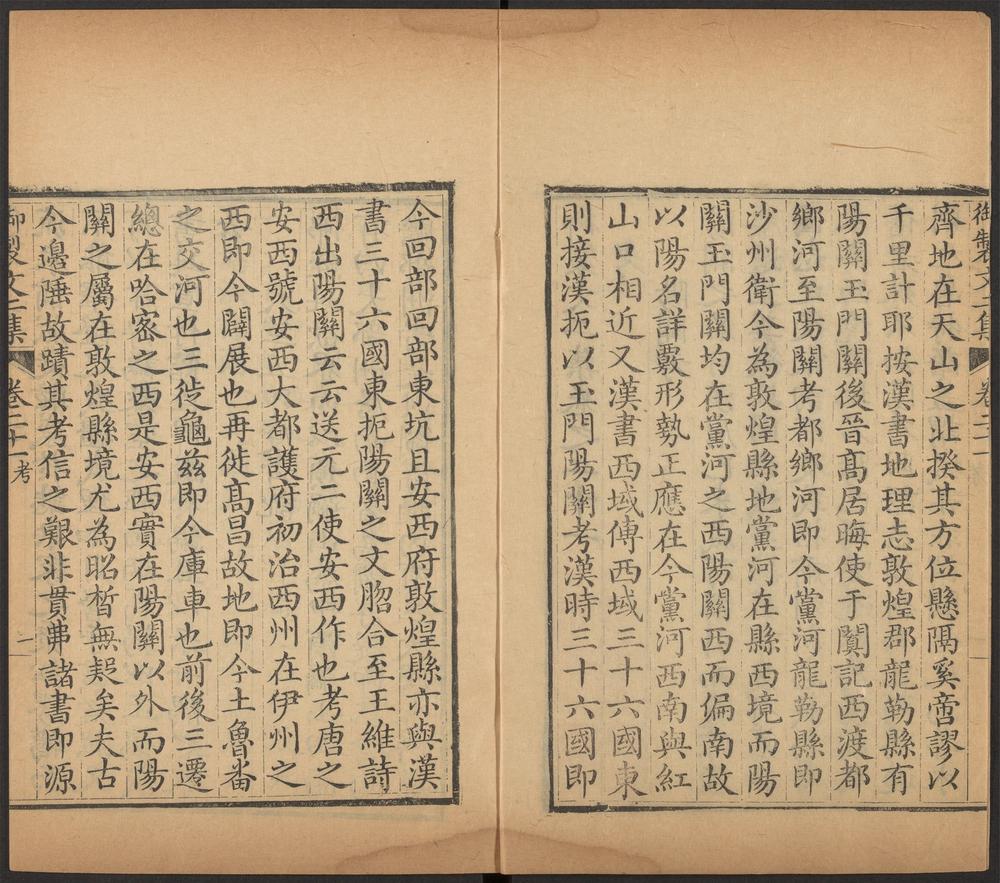 御製文二集
卷二十一
齊地在天山之北揆其方位懸隔奚啻謬以
千里計耶按漢書地理志敦煌郡龍勒縣有
陽關玉門關後晉高居晦使于闐記西渡都
鄉河至陽關考都鄉河即今黨河龍勒縣即
沙州衛今為敦煌縣地黨河在縣西境而陽
關玉門關均在黨河之西陽關西而偏南故
以陽名詳覈形勢正應在今黨河西南與紅
山口相近又漢書西域傳西域三十六國東
則接漢扼以玉門陽關考漢時三十六國即
今回部回部東坑且安西府敦煌縣亦與漢
書三十六國東扼陽關之文脗合至王維詩
西出陽關云云送元二使安西作也考唐之
安西號安西大都護府初治西州在伊州之
西即今闢展也再徙高昌故地即今土魯番
之交河也三徙龜茲即今庫車也前後三遷
總在哈宻之西是安西實在陽關以外而陽
關之屬在敦煌縣境尤為昭晳無疑矣夫古
今邊陲故蹟其考信之艱非貫弗諸書即源
御製文二集
卷二十一 考
二